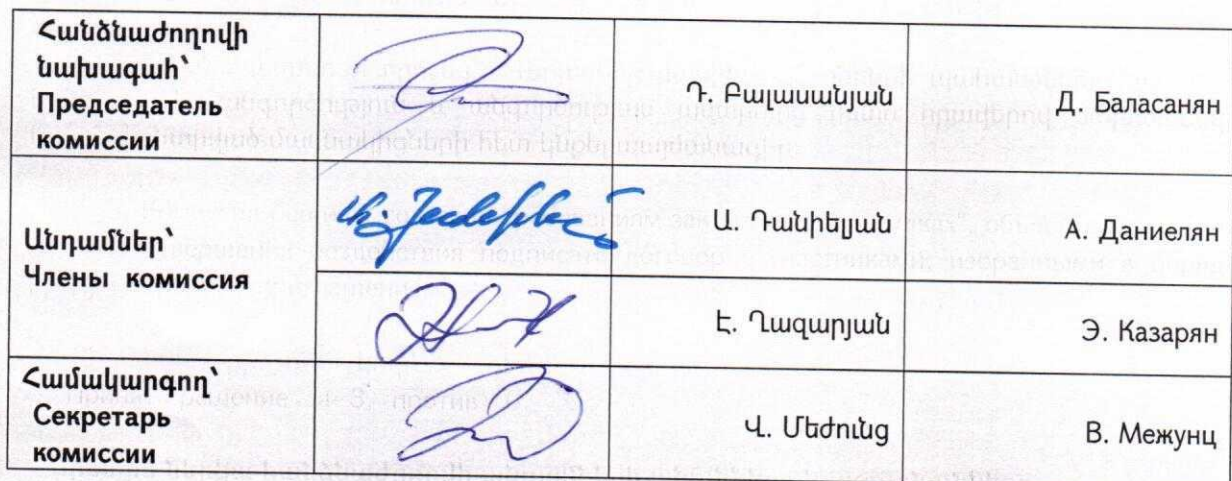 Հանձնաժողովի
նախագահ՝
Председатель
комиссии
Դ. Բալասանյան
Д. Баласанян
Անդամներ՝
Члены комиссия
Ա. Դանիելյան
А. Даниелян
Է. Ղազարյան
Э. Казарян
Համակարգող՝
Секретарь
комиссии
Վ. Մեժունց
В. Межунц